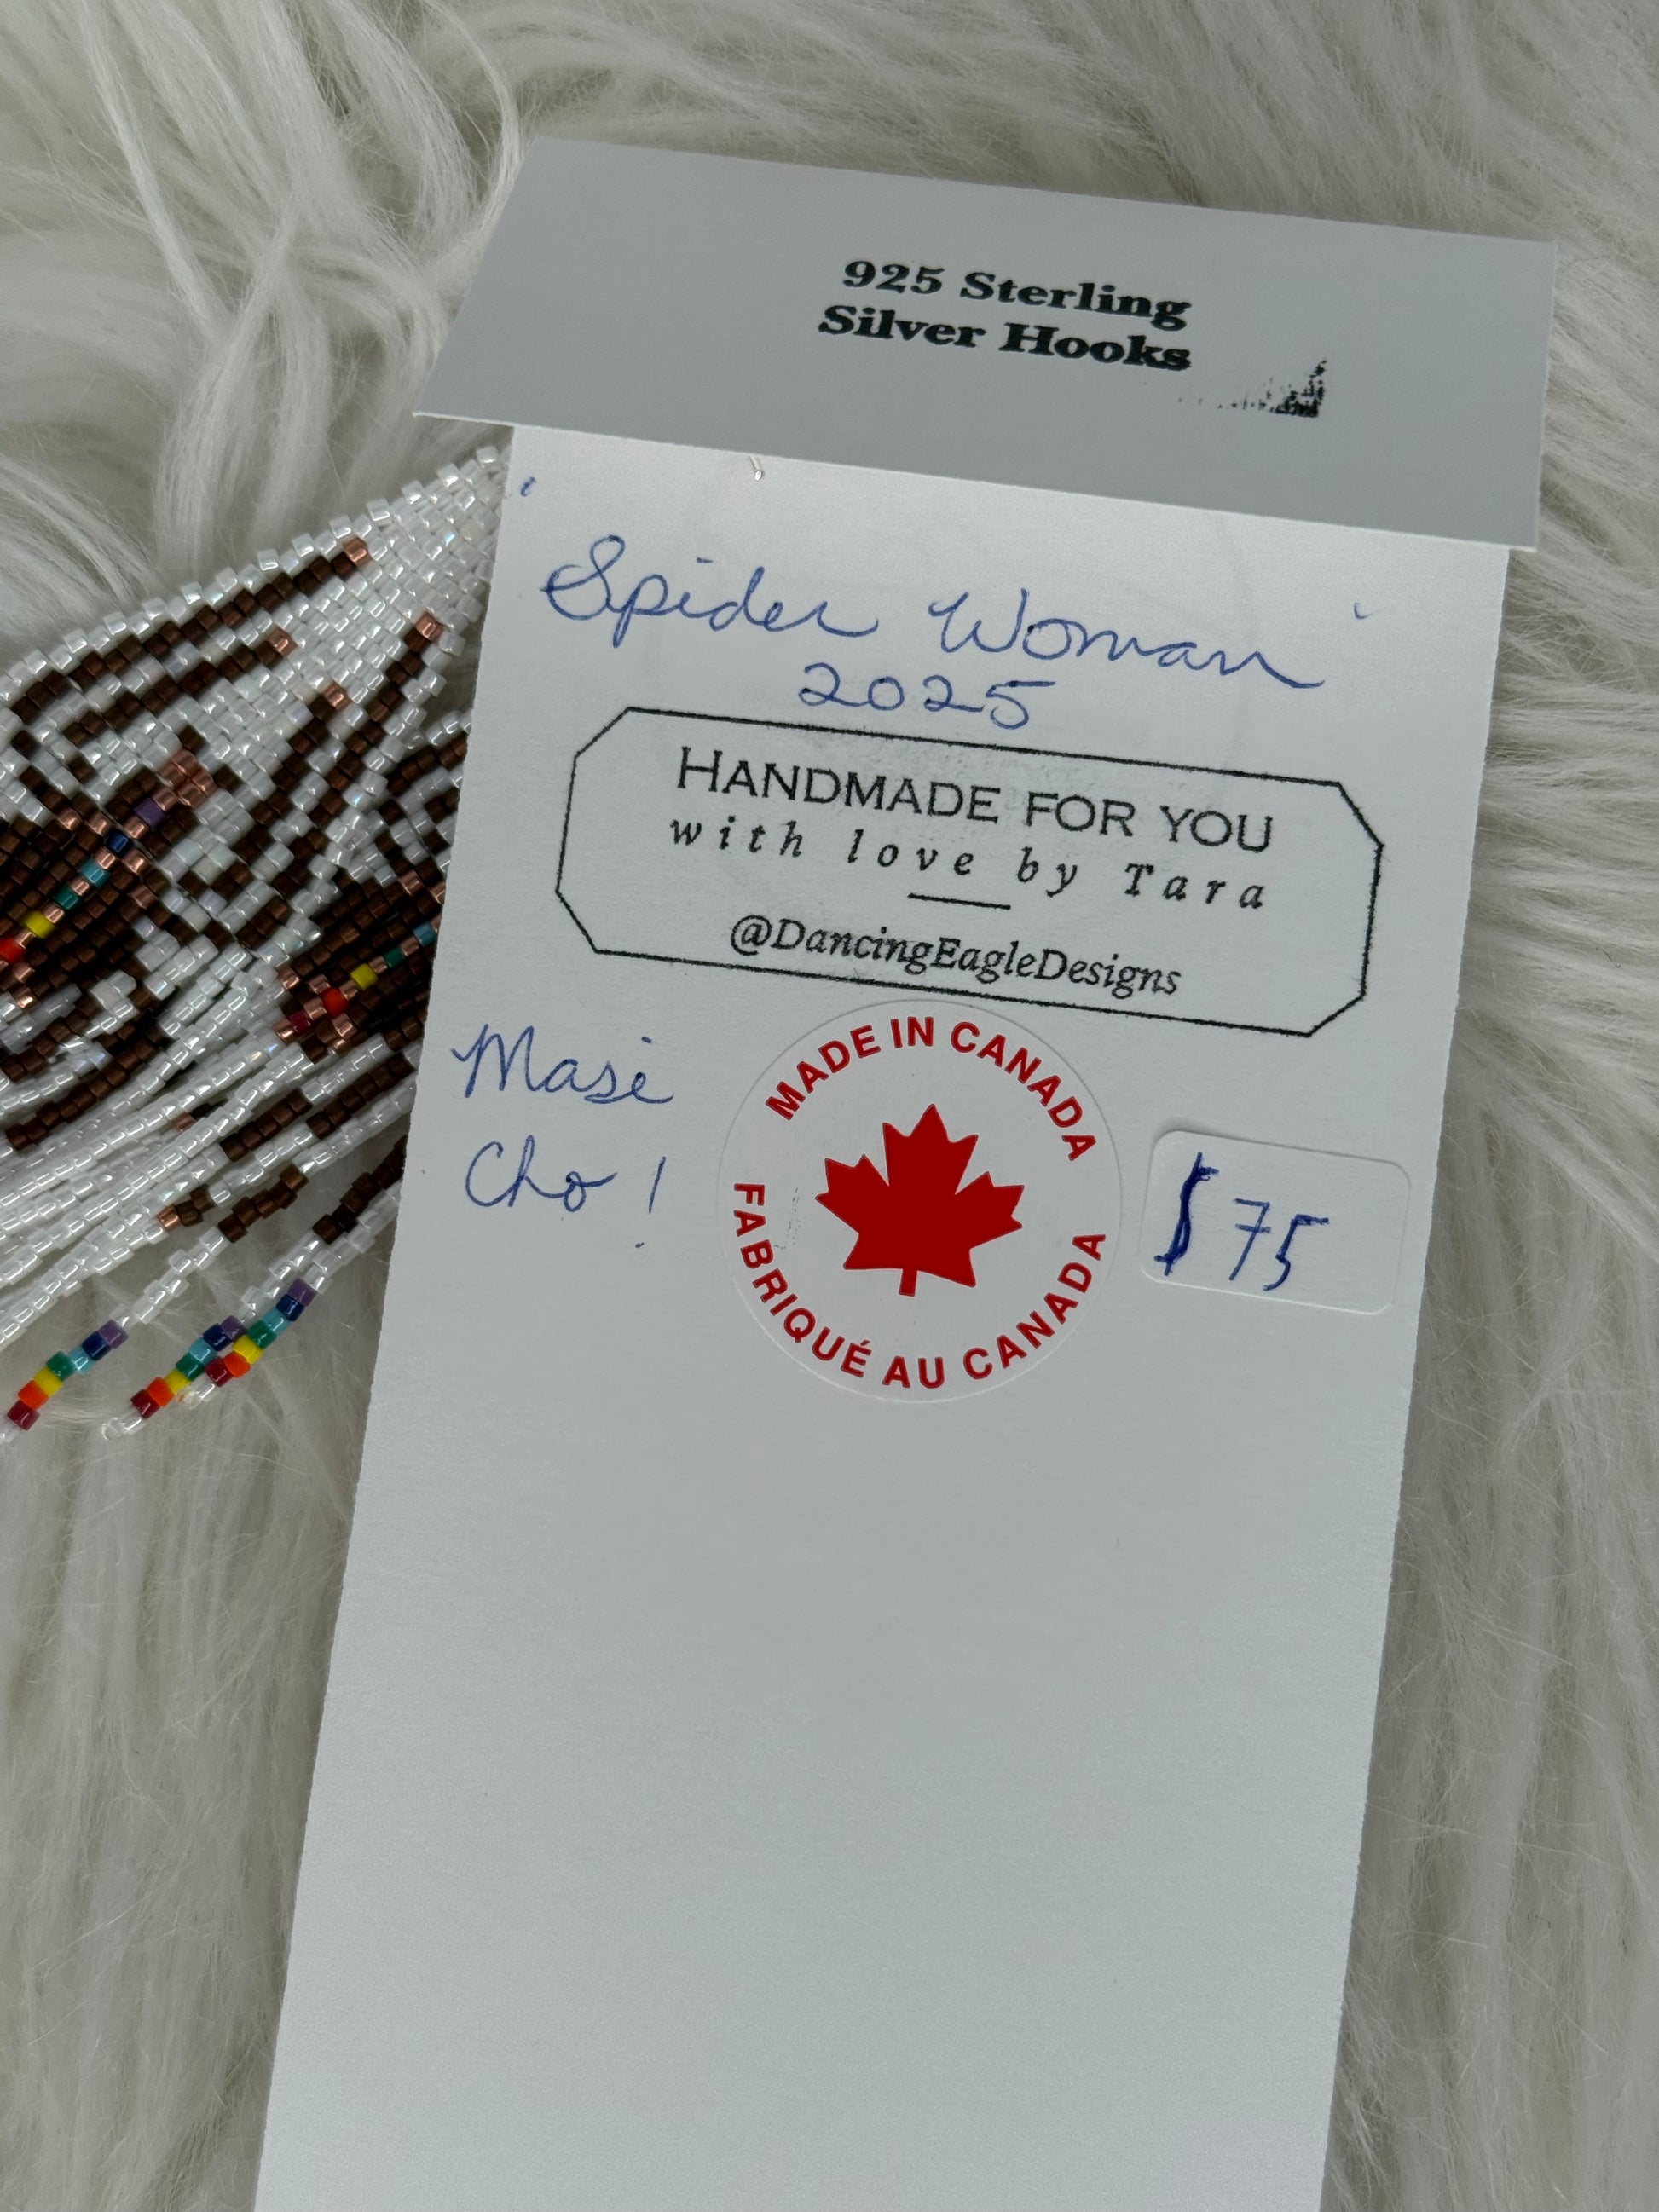 925 Sterling
Silver Hooks
'Spider Woman'
2025
HANDMADE FOR YOU
with love by Tara
@DancingEagleDesigns
Masi
Cho!
MADE IN CANADA
FABRIQUÉ AU CANADA
$75